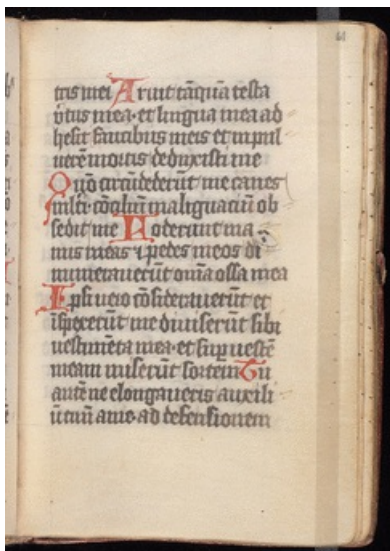 tris mei Aruit tãquã testa
v̓tus mea·et lingua mea ad
hesit faucibus meis et in pul
uerẽ mortis deduxisti me
Qm̃o circũdederũt me canes
mlti cõsiliũ malignaciũ ob
sedit me Foderunt ma
nus meas ⁊ pedes meos di
numerauerũt om̃ia ossa mea
Ipsi uero cõsiderauerũt et
ĩspexerũt me diuiserũt sibi
uestimẽta mea·et sup uestẽ
meam miserũt sortem Tu
autẽ ne elongaueris auxili
ũ tuũ a me·ad defensionem